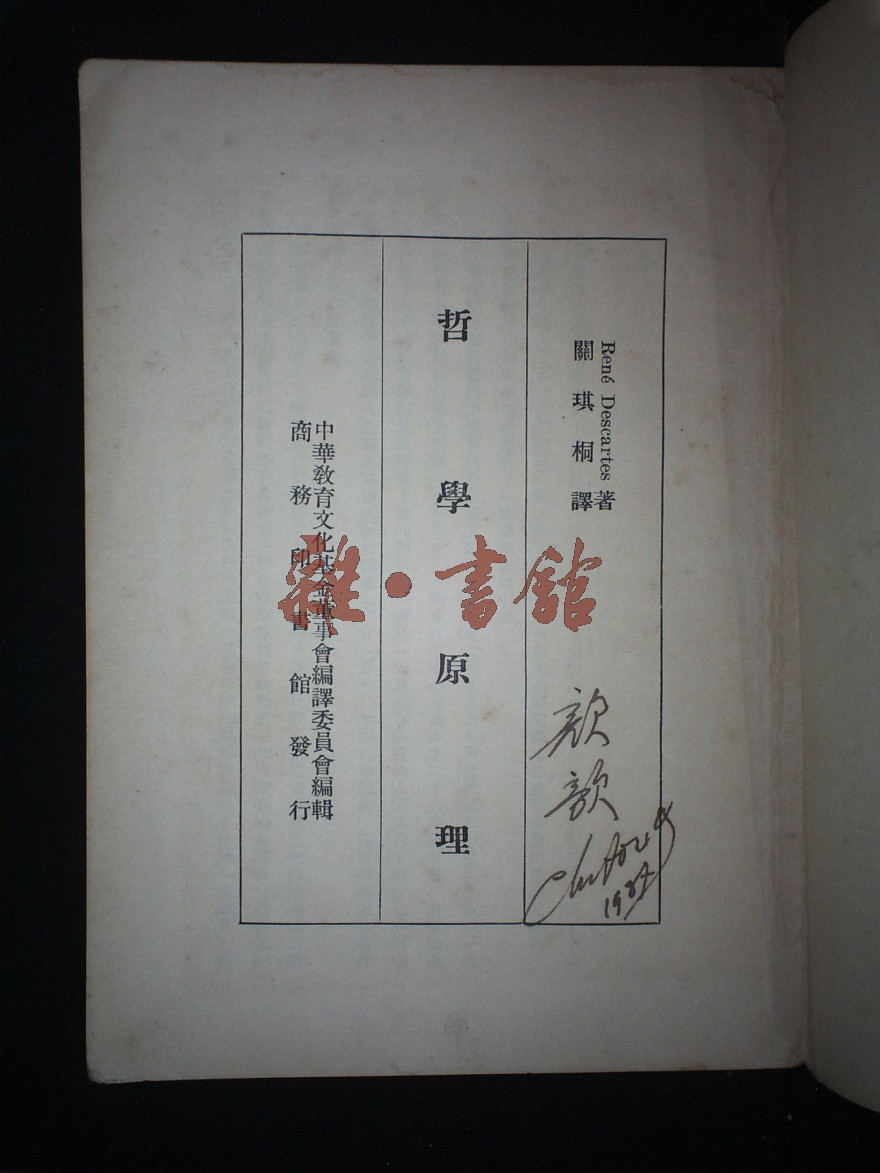 René Descartes 著
關琪桐譯
哲學原理
中華教育文化基金董事會編譯委員會編輯
商務印書館發行
雜·書館